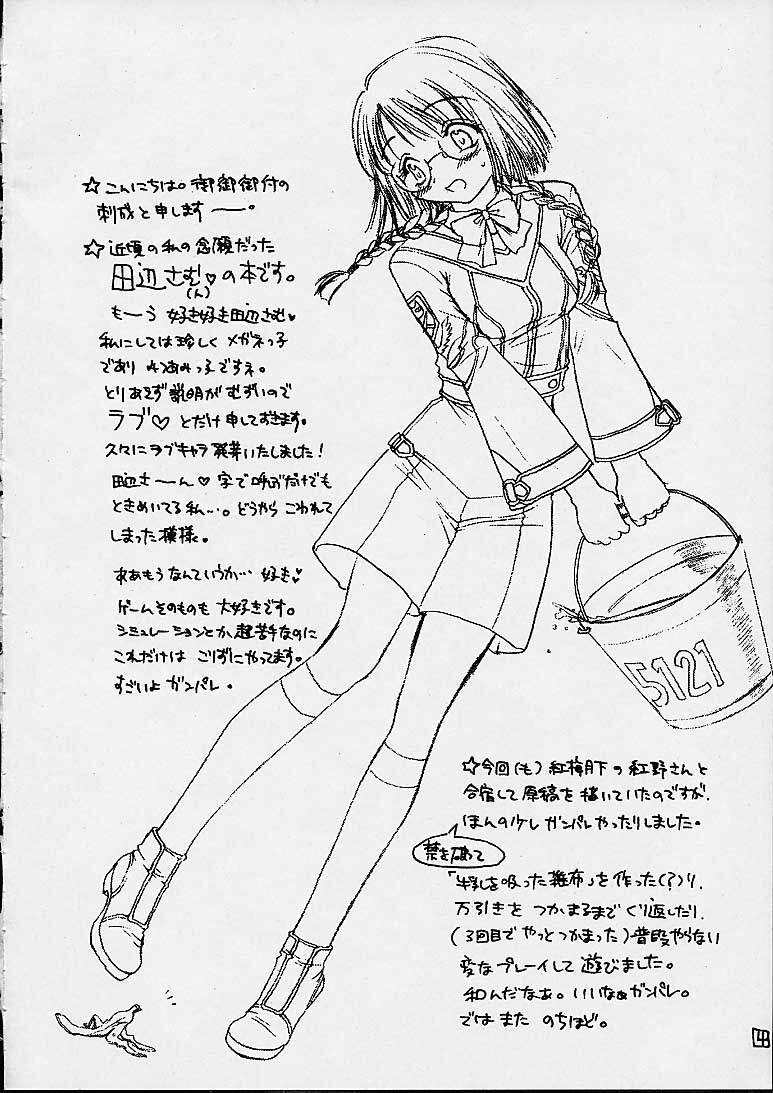 ☆こんにちは。御御御付の
刺成と申します――。
☆近頃の私の念願だった
田辺さむ♥の本です。
(ん)
も―う 好き好き田辺さむ♥
私にしては珍しくメガネっ子
であり みつあみっ子ですネ。
とりあえず説明がむずいので
ラブ♡ とだけ申しておきます。
久々にラブキャラ発芽いたしました!
田辺さ―ん♥字で呼ぶだけでも
ときめいてる私…。どうやら こわれて
しまった模様。
ああもうなんていうか… 好き♥
ゲームそのものも 大好きです。
シミュレーションとか超苦手なのに
これだけは こりずにやってます。
すごいよ ガンパレ。
5121
☆今回(も)紅梅月下の紅野さんと
合宿して原稿を描いていたのですが、
ほんの少しガンパレやったりしました。
禁を破って
「牛乳を吸った雑布」を作った(?)り、
万引きを つかまるまで くり返したり、
(3回目で やっとつかまった)普段やらない
変なプレイして 遊びました。
和んだなぁ。いいなぁガンパレ。
では また のちほど。